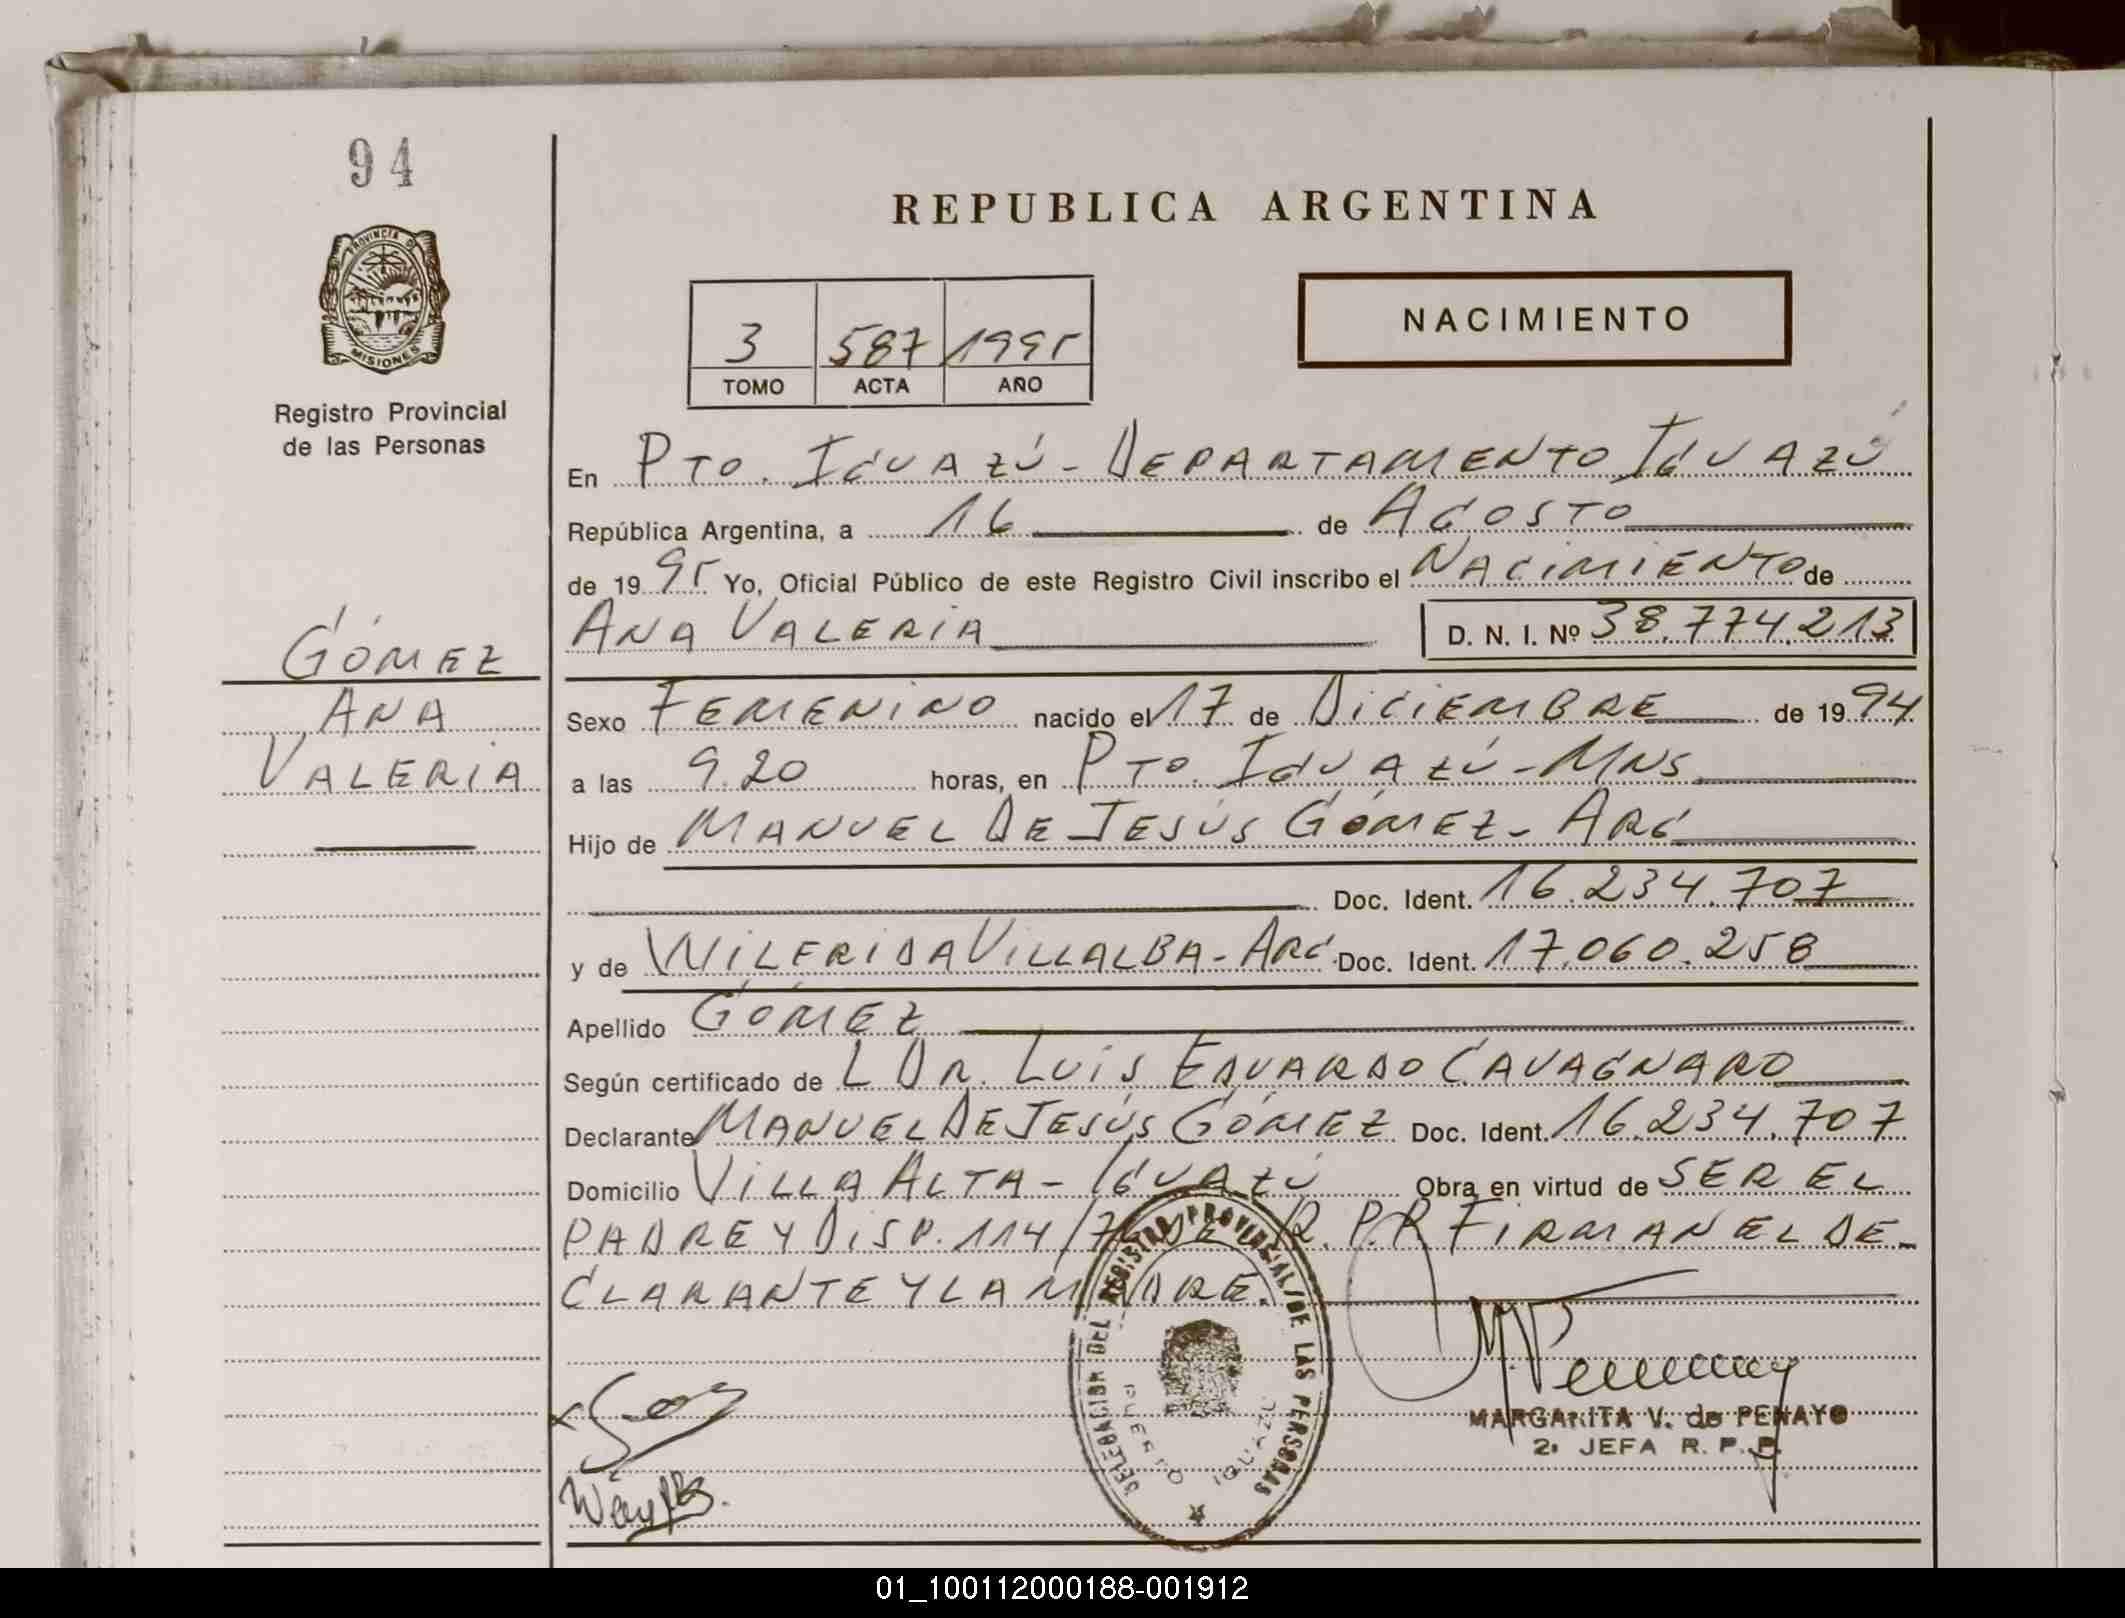 94
PROVINCIA DE
MISIONES
Registro Provincial
de las Personas
REPUBLICA ARGENTINA
3 587 1995
TOMO ACTA AÑO
NACIMIENTO
En PTO. IGUAZÚ - DEPARTAMENTO IGUAZÚ
República Argentina, a 16 de AGOSTO
de 1995 Yo, Oficial Público de este Registro Civil inscribo el NACIMIENTO de
ANA VALERIA D. N. I. Nº 38.774.213
GÓMEZ
ANA
VALERIA
Sexo FEMENINO nacido el 17 de DICIEMBRE de 1994
a las 9.20 horas, en PTO. IGUAZÚ - MNS
Hijo de MANUEL DE JESÚS GÓMEZ - ARG
Doc. Ident. 16.234.707
y de WILFRIDA VILLALBA - ARG Doc. Ident. 17.060.258
Apellido GÓMEZ
Según certificado de L DR. LUIS EDUARDO CAVAGNARO
Declarante MANUEL DE JESÚS GÓMEZ Doc. Ident. 16.234.707
Domicilio VILLA ALTA - IGUAZÚ Obra en virtud de SER EL
PADRE Y DISP. 114/76 DE R.P.P. FIRMAN EL DE-
CLARANTE Y LA MADRE.
DELEGACION DEL REGISTRO PROVINCIAL DE LAS PERSONAS
PUERTO IGUAZU
MARGARITA V. de PENAYO
2ª JEFA R. P. P.
01_100112000188-001912